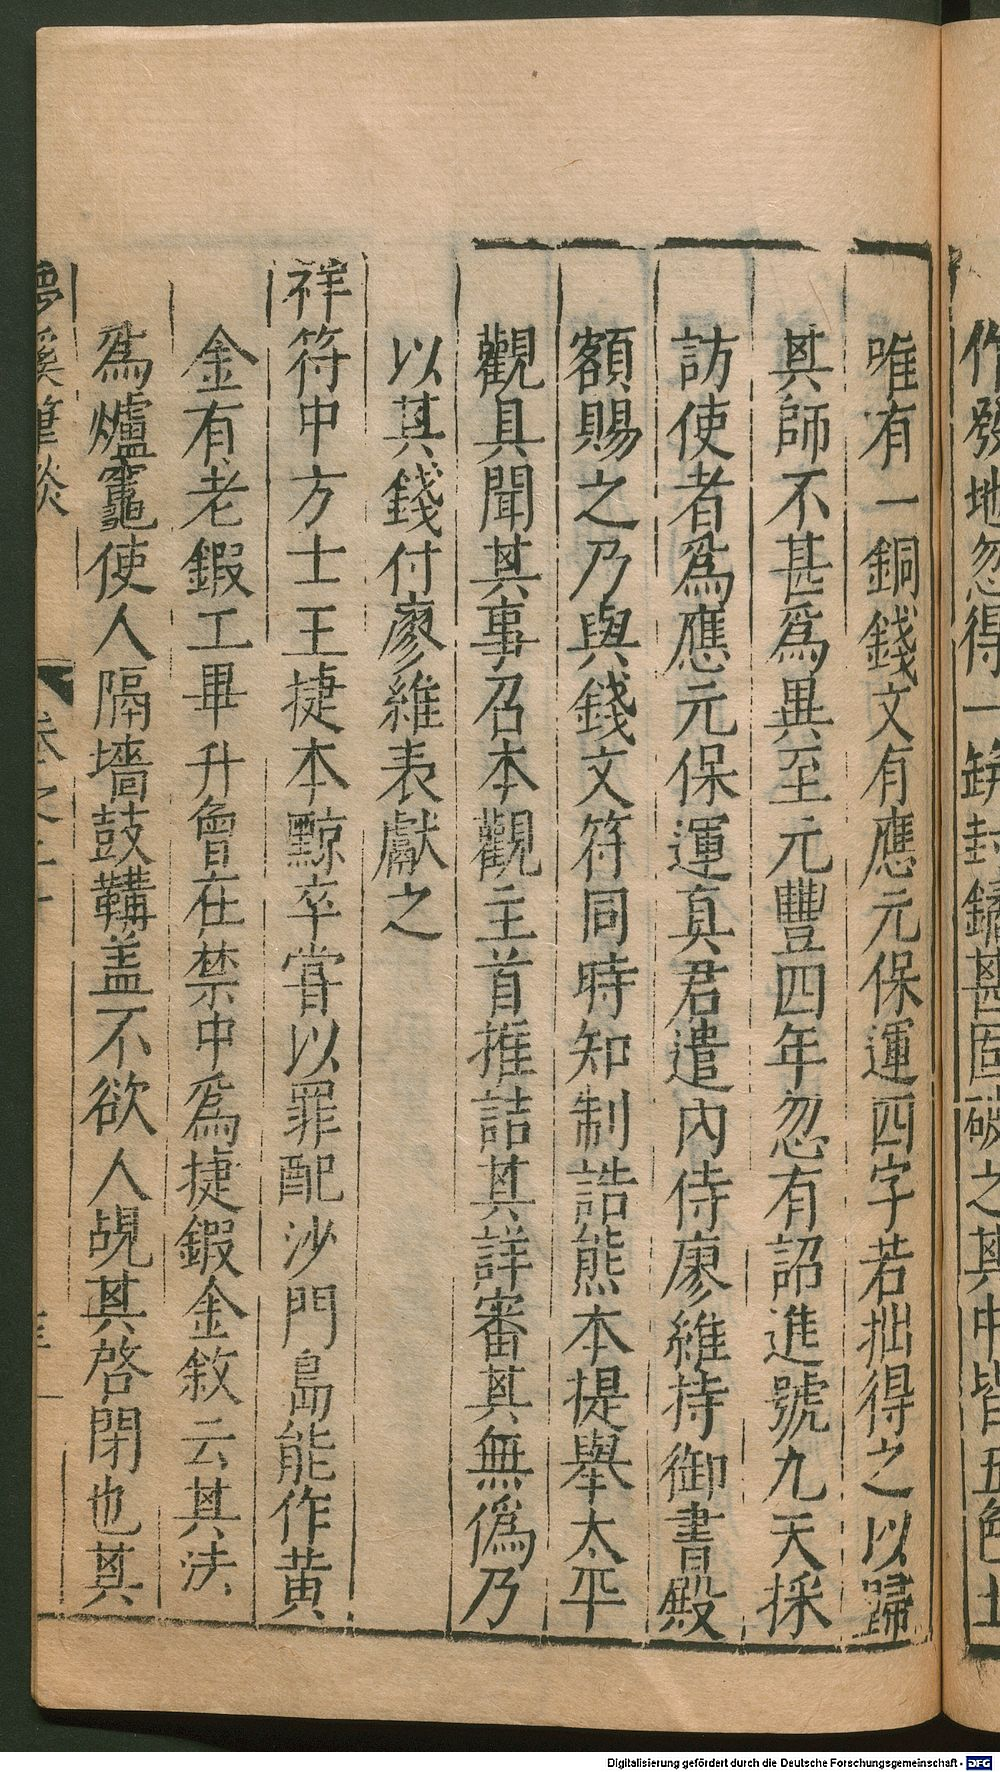 作發地忽得一缾封鐍甚固破之其中皆五色土
唯有一銅錢文有應元保運四字若拙得之以歸
其師不甚爲異至元豐四年忽有詔進號九天採
訪使者爲應元保運真君遣內侍廖維持御書殿
額賜之乃與錢文符同時知制誥熊本提舉太平
觀具聞其事召本觀主首推詰其詳審其無僞乃
以其錢付廖維表獻之
祥符中方士王捷本黥卒嘗以罪配沙門島能作黄
金有老鍜工畢升曾在禁中爲捷鍜金敘云其法
爲爐竈使人隔墻鼓鞴盖不欲人覘其啓閉也其
夢溪筆談 卷之二十
Digitalisierung gefördert durch die Deutsche Forschungsgemeinschaft - DFG